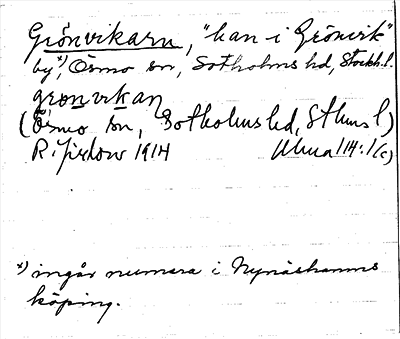 Grönvikarn, "han i Grönvik"
by x), Ösmo sn, Sotholms hd, Stockh.l.
grønvikan
(Ösmo sn, Sotholms hd, Sthms l)
R. 1914
Ulma 114:1(c)
x) ingår numera i Nynäshamns
köping.